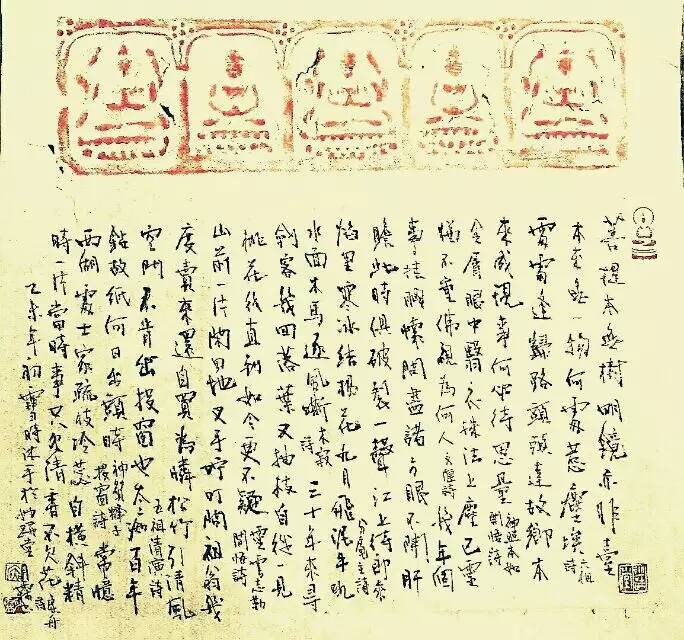 菩提本無樹明鏡亦非臺
本來無一物何處惹塵埃 六祖詩
處處逢歸路頭頭達故鄉本
來成現事何必待思量 神照本如開悟詩
金屑眼中翳衣珠法上塵己靈
猶不重佛祖為何人 玄偈詩 幾年個
事挂胸懷問盡諸方眼不開肝
膽此時俱破裂一聲江上侍郎來
焰里寒冰結楊花九月飛泥牛吼 分庵主詩
水面木馬逐風嘶 本寂詩 三十年來尋
劍客幾回落葉又抽枝自從一見
桃花後直到如今更不疑 靈雲志勤開悟詩
山前一片閑田地叉手叮嚀問祖翁幾
度賣來還自買為憐松竹引清風 五祖清演詩
空門不肯出投窗也太痴百年
鉆故紙何日出頭時 神贊禪子投窗詩 常憶
西湖處士家疏枝冷蕊自橫斜精
時一片當時事只欠清香不欠花 舟詩
乙未年初雪時沐手於